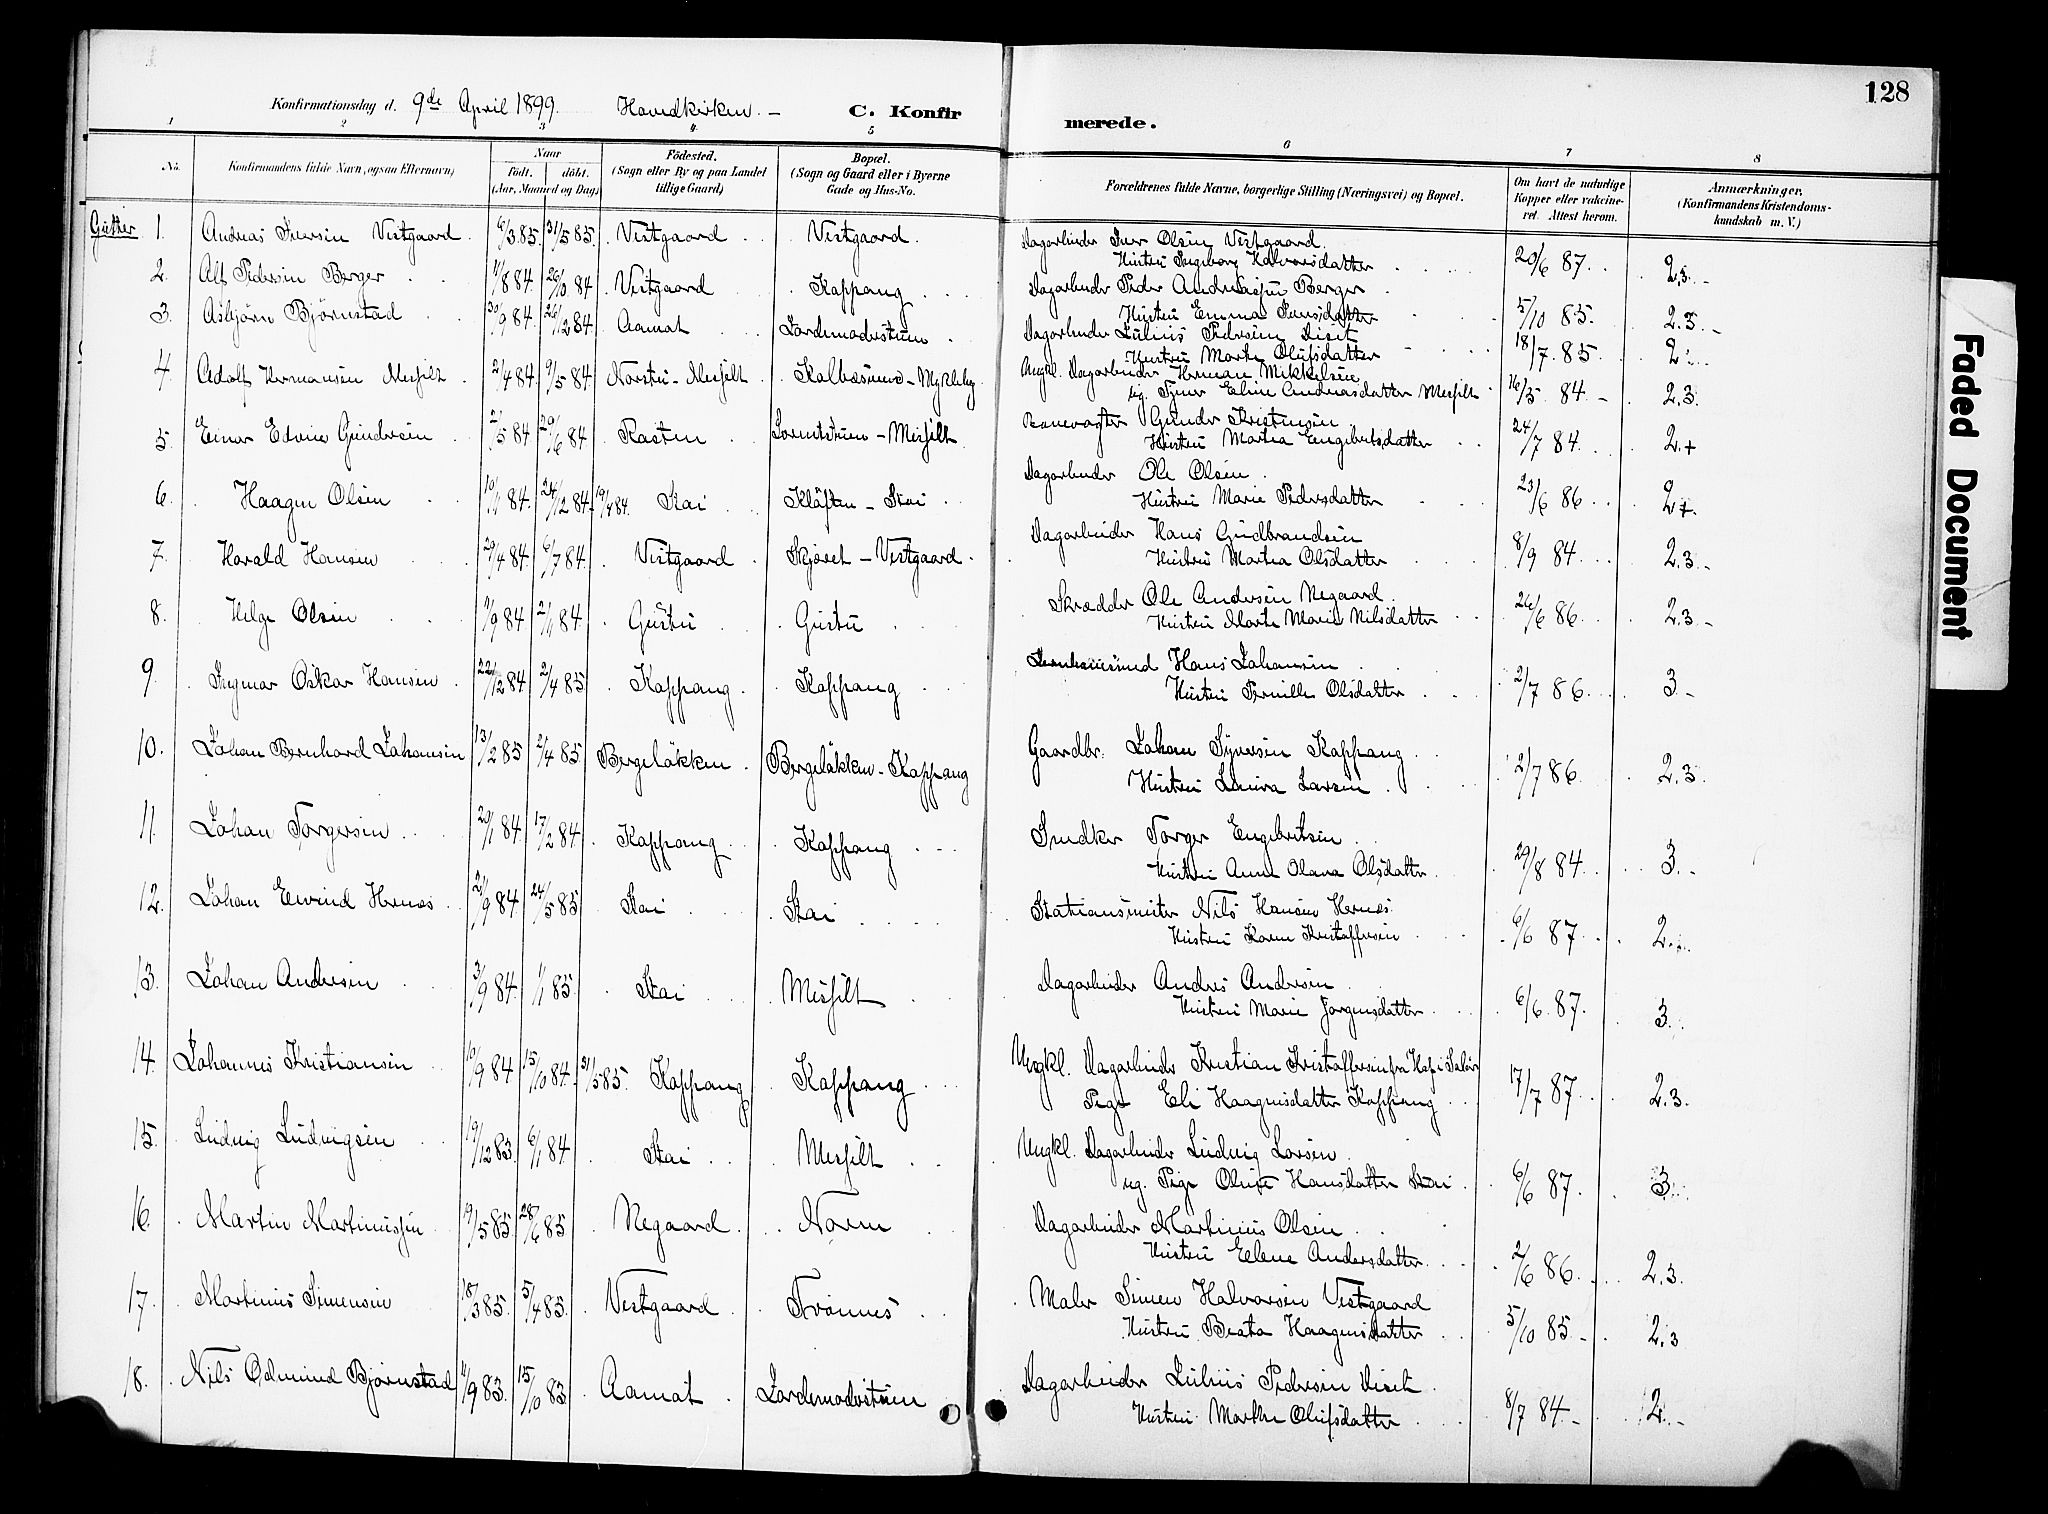 128
Konfirmationsdag d. 9de April 1899. Hovedkirken. — C. Konfirmerede.
1 2 3 4 5 6 7 8
No. Konfirmandens fulde Navn, ogsaa Efternavn) Naar födt. döbt. (Aar, Maaned og Dag) Födested. (Sogn eller By og paa Landet tillige Gaard) Bopæl. (Sogn og Gaard eller i Byerne Gade og Hus-No. Forældrenes fulde Navne, borgerlige Stilling (Næringsvei) og Bopæl. Om havt de naturlige Kopper eller vaccineret. Attest herom. Anmærkninger, (Konfirmandens Kristendomskundskab m. V.)
Gutter 1. Andreas Iversen Vestgaard 6/3 85. 31/5 85. Vestgaard Vestgaard. Dagarbeider Iver Olsen Vestgaard.
Hustru Ingeborg Halvorsdatter 20/6 87. 2.3.
2. Alf Pedersen Berger 11/8 84 26/10 84 Vestgaard Koppang Dagarbeider Peder Andreassen Berger
Hustru Emma Jensdatter 5/10 85. 2.3.
3. Asbjörn Björnstad 30/9 84. 26/12 84. Aamot Jordemoderstuen Dagarbeider Julius Pedersen Diset
Hustru Marthe Olufsdatter 18/7 85. 2.
4. Adolf Hermansen Messelt 2/4 84. 9/5 84 Norstu - Messelt Kolbæsmoe - Mykleby Ungkl. Dagarbeider Herman Mikkelsen
og Pige Eline Andreasdatter Messelt 16/5 84. 2.3.
5. Einar Edvin Gundersen 2/5 84 29/6 84 Rasten - Messelt Banevogter Gunder Kristensen
Hustru Marthea Engebretsdatter 24/7 84. 2.+
6. Haagen Olsen 10/11 84. 24/12 84. 19/4 84. Stai Kläften - Stai Dagarbeider Ole Olsen.
Hustru Marie Pedersdatter 23/6 86 2+.
7. Harald Hansen 29/4 84. 6/7 84. Vestgaard Skjöret - Vestgaard. Dagarbeider Hans Gudbrandsen
Hustru Marthea Olsdatter 8/9 84. 2.3.
8. Helge Olsen 9/9 84 2/11 84 Gustu Gustu Skrædder Ole Andersen Negaard.
Hustru Marte Marie Nilsdatter 26/6 86. 2.3.
9. Ingmar Oskar Hansen 22/12 84 2/4 85 Koppang. Koppang Hans Johansen
Hustru Pernille Olsdatter 2/7 86. 3.
10. Johan Bernhard Johansen 13/2 85 2/4 85. Bergelökken Bergelökken - Koppang Gaardbr. Johan Syversen Koppang
Hustru Laura Larsen 2/7 86. 2.3.
11. Johan Torgersen 20/1 84. 17/2 84. Koppang Koppang Snedker Torger Engebretsen
Hustru Anne Olava Olsdatter. 29/8 84. 3.
12. Johan Eivind Hernes 21/9 84. 24/5 85 Stai Stai Stationsmester Nils Hansen Hernes.
Hustru Karen Kristoffersen 6/6 87. 2.
13. Johan Andersen 3/9 84. 1/1 85. Stai Messelt Dagarbeider Andres Andersen
Hustru Marie Jorgensdatter 6/6 87. 3.
14. Johannes Kristiansen 10/9 84 15/10 84. 31/5 85. Koppang Koppang Ungkl. Dagarbeider Kristian Kristoffersen fra Hof i Solör
Pige Eli Haagensdatter Koppang 17/7 87. 2.3.
15. Ludvig Ludvigsen 19/12 83. 6/1 84 Stai Messelt Ungkl. Dagarbeider Ludvig Larsen
og Pige Oline Hansdatter Stai. 6/6 87. 3.
16. Martin Martinussen 19/5 85. 28/6 85 Negaard. Noren Dagarbeider Martinus Olsen
Hustru Elene Andersdatter 2/6 86. 2.3.
17. Martinus Simensen 18/3 85. 5/4 85. Vestgaard Trönnes Maler Simen Halvorsen Vestgaard
Hustru Beata Haagensdatter 5/10 85. 2.3
18. Nils Odmund Björnstad 11/9 83. 15/10 83. Aamot Jordemoderstuen Dagarbeider Julius Pedersen Diset
Hustru Marthe Olufsdatter 8/7 84. 2.
Faded Document